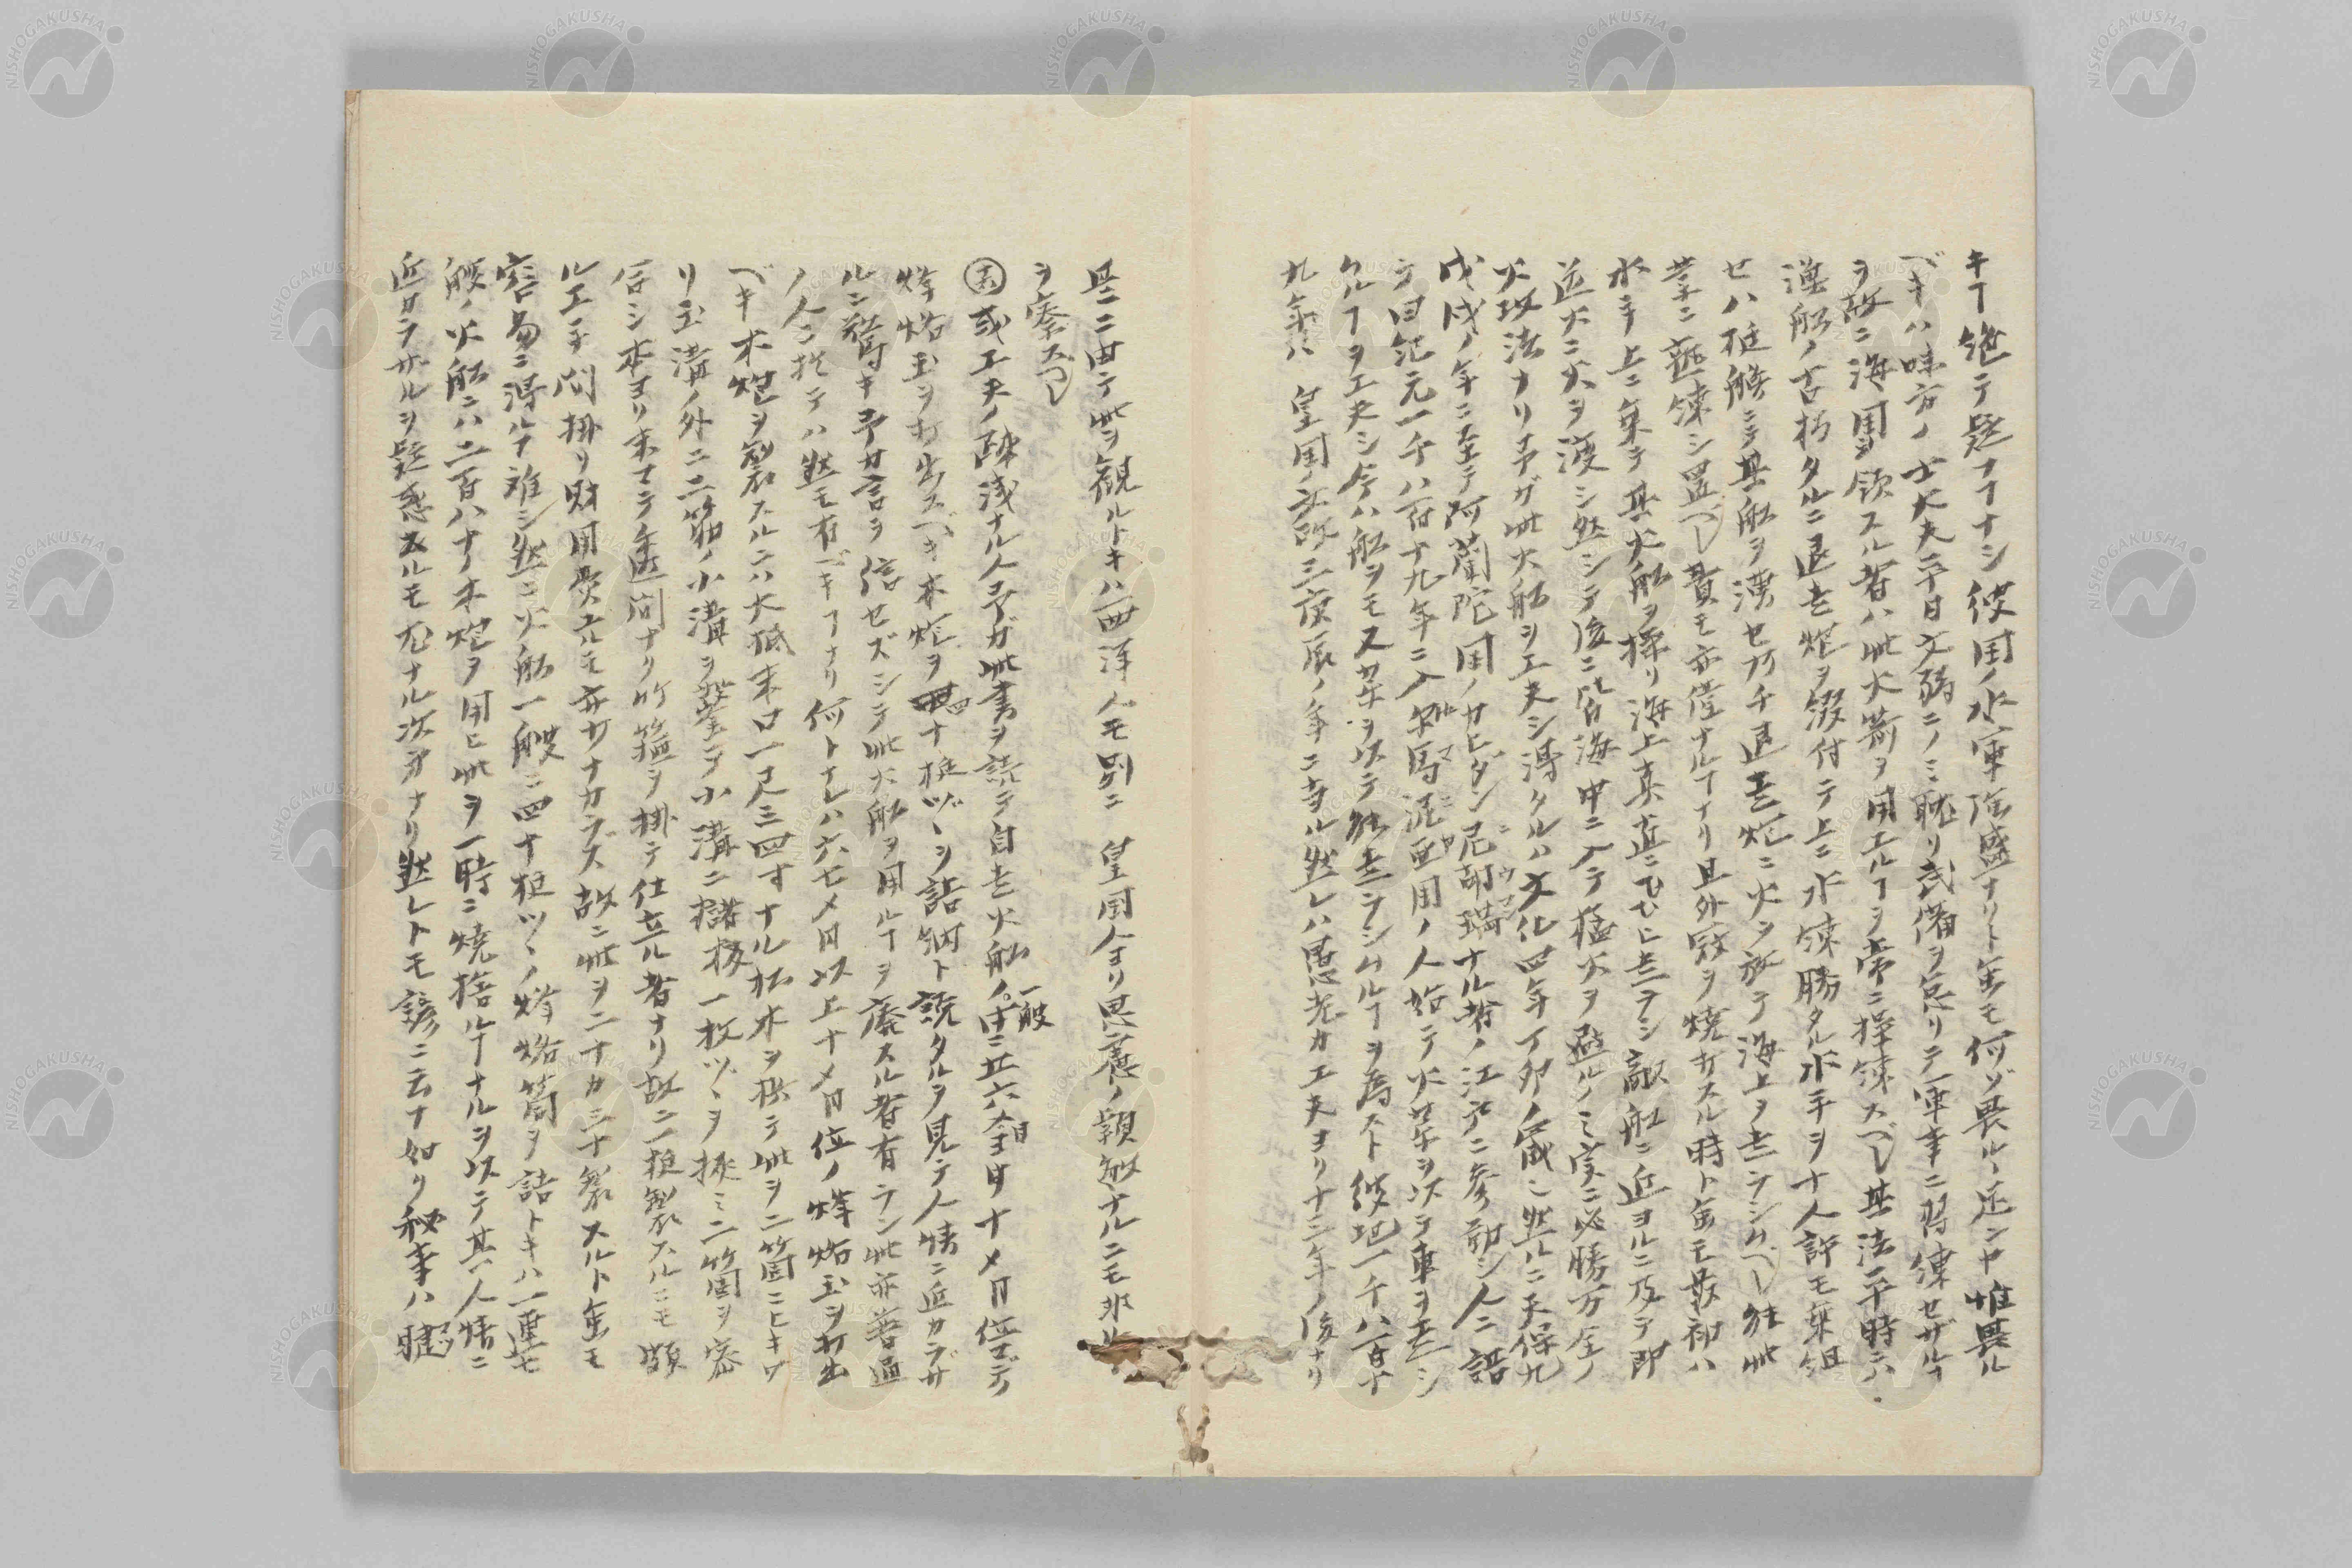 キヿ絶テ疑ナヿナシ彼国ノ水軍強盛ナリト雖モ何ゾ畏ルヽ足ンヤ惟畏ル
ベキハ味方ノ士大夫平日文弱ニノミ耽リ武備ヲ怠リテ軍事ニ習練セザルヿ
ヲ故ニ海国ヲ領スル者ハ此火箭ヲ用エルヿヲ常ニ操練スベシ其法平時ニハ
漁船ノ古朽タルニ自走炮ヲ綴付テ上ニ水練勝タル水手ヲ十人許モ乗組
セハ挺艪ニテ其船ヲ漕セ乃チ自走炮ニ火ヲ放テ海上ヲ走ラシムベシ能此
業ニ熟練シ置ベシ費モ亦僅ナルヿナリ且外寇ヲ焼カスル時ト雖モ最初ハ
水手上ニ乗テ其火船ヲ操リ海上真直ニ走ラシ敵船ニ近ヨルニ及テ即
逆火ニ火ヲ渡シ然シテ後ニ皆海中ニ入テ猛火ヲ避ルノミ実ニ必勝万全ノ
火攻法ナリ予ガ此火船ヲ工夫シ得タルハ文化四年丁卯ノ歳ニ然ルニ天保九
戊戌ノ年ニ至テ阿蘭陀国ノカピタン尼部瑪ナル者ノ江戸ニ参朝シ人ニ語
テ曰紀元一千八百十九年ニ入尔馬泥亜国ノ人始テ火芽ヲ以テ車ヲ走シ
ケルヿヲ工夫シ今ハ船ヲモ又火芽ヲ以テ能走ラシムルヿヲ為スト彼地一千八百十
九年ハ 皇国ノ文政三庚辰ノ年ニ当ル然レハ愚老カ工夫ヨリ十三年ノ後ナリ
是ニ由テ此ヲ観ルトキハ西洋人モ別ニ 皇国人ヨリ思慮ノ頴敏ナルニモ非ル
ヲ察スベシ
或工夫ノ疎浅ナル人予ガ此書ヲ読テ自走火船ノ一艘ニ五六百目ヨリ十メ目位マデノ
烽烙玉ヲ打出スベキ木炮ヲ四十挺ヅヽヲ詰納ト説タルヲ見テ人情ニ近カラザ
ルニ驚キ予カ言ヲ信セズシテ此火船ヲ用ルヿヲ廃スル者有ラン此亦普通
ノ人ニ於テハ然モ有ベキヿナリ何トナレハ六七メ目以上十メ目位ノ烽烙玉ヲ打出
ベキ木炮ヲ製スルニハ大抵末口一尺三四寸ナル松木ヲ撰テ此ヲ二箇ニヒキワ
リ玉溝ノ外ニ二筋ノ小溝ヲ鑿テ小溝ニ檣板一枚ヅヽヲ挟ミ二箇ヲ密
合シ本ヨリ末マテ透間ナク竹箍ヲ掛テ仕立ル者ナリ故ニ一挺製スルニモ頗
ル工手間掛リ財用費エルモ亦少ナカラズ故ニ此ヲ二十カ三十製スルト雖モ
容易ニ得ルヿ難シ然ニ火船一艘ニ四十挺ツヽノ烽烙筒ヲ詰トキハ一連七
艘ノ火船ニハ二百八十ノ木炮ヲ用ヒ此ヲ一時ニ焼捨ルヿナルヲ以テ其ハ人情ニ
近カラザルヲ疑惑スルモ尤ナル次第ナリ然レトモ諺ニ云ナ如ク秘事ハ睫